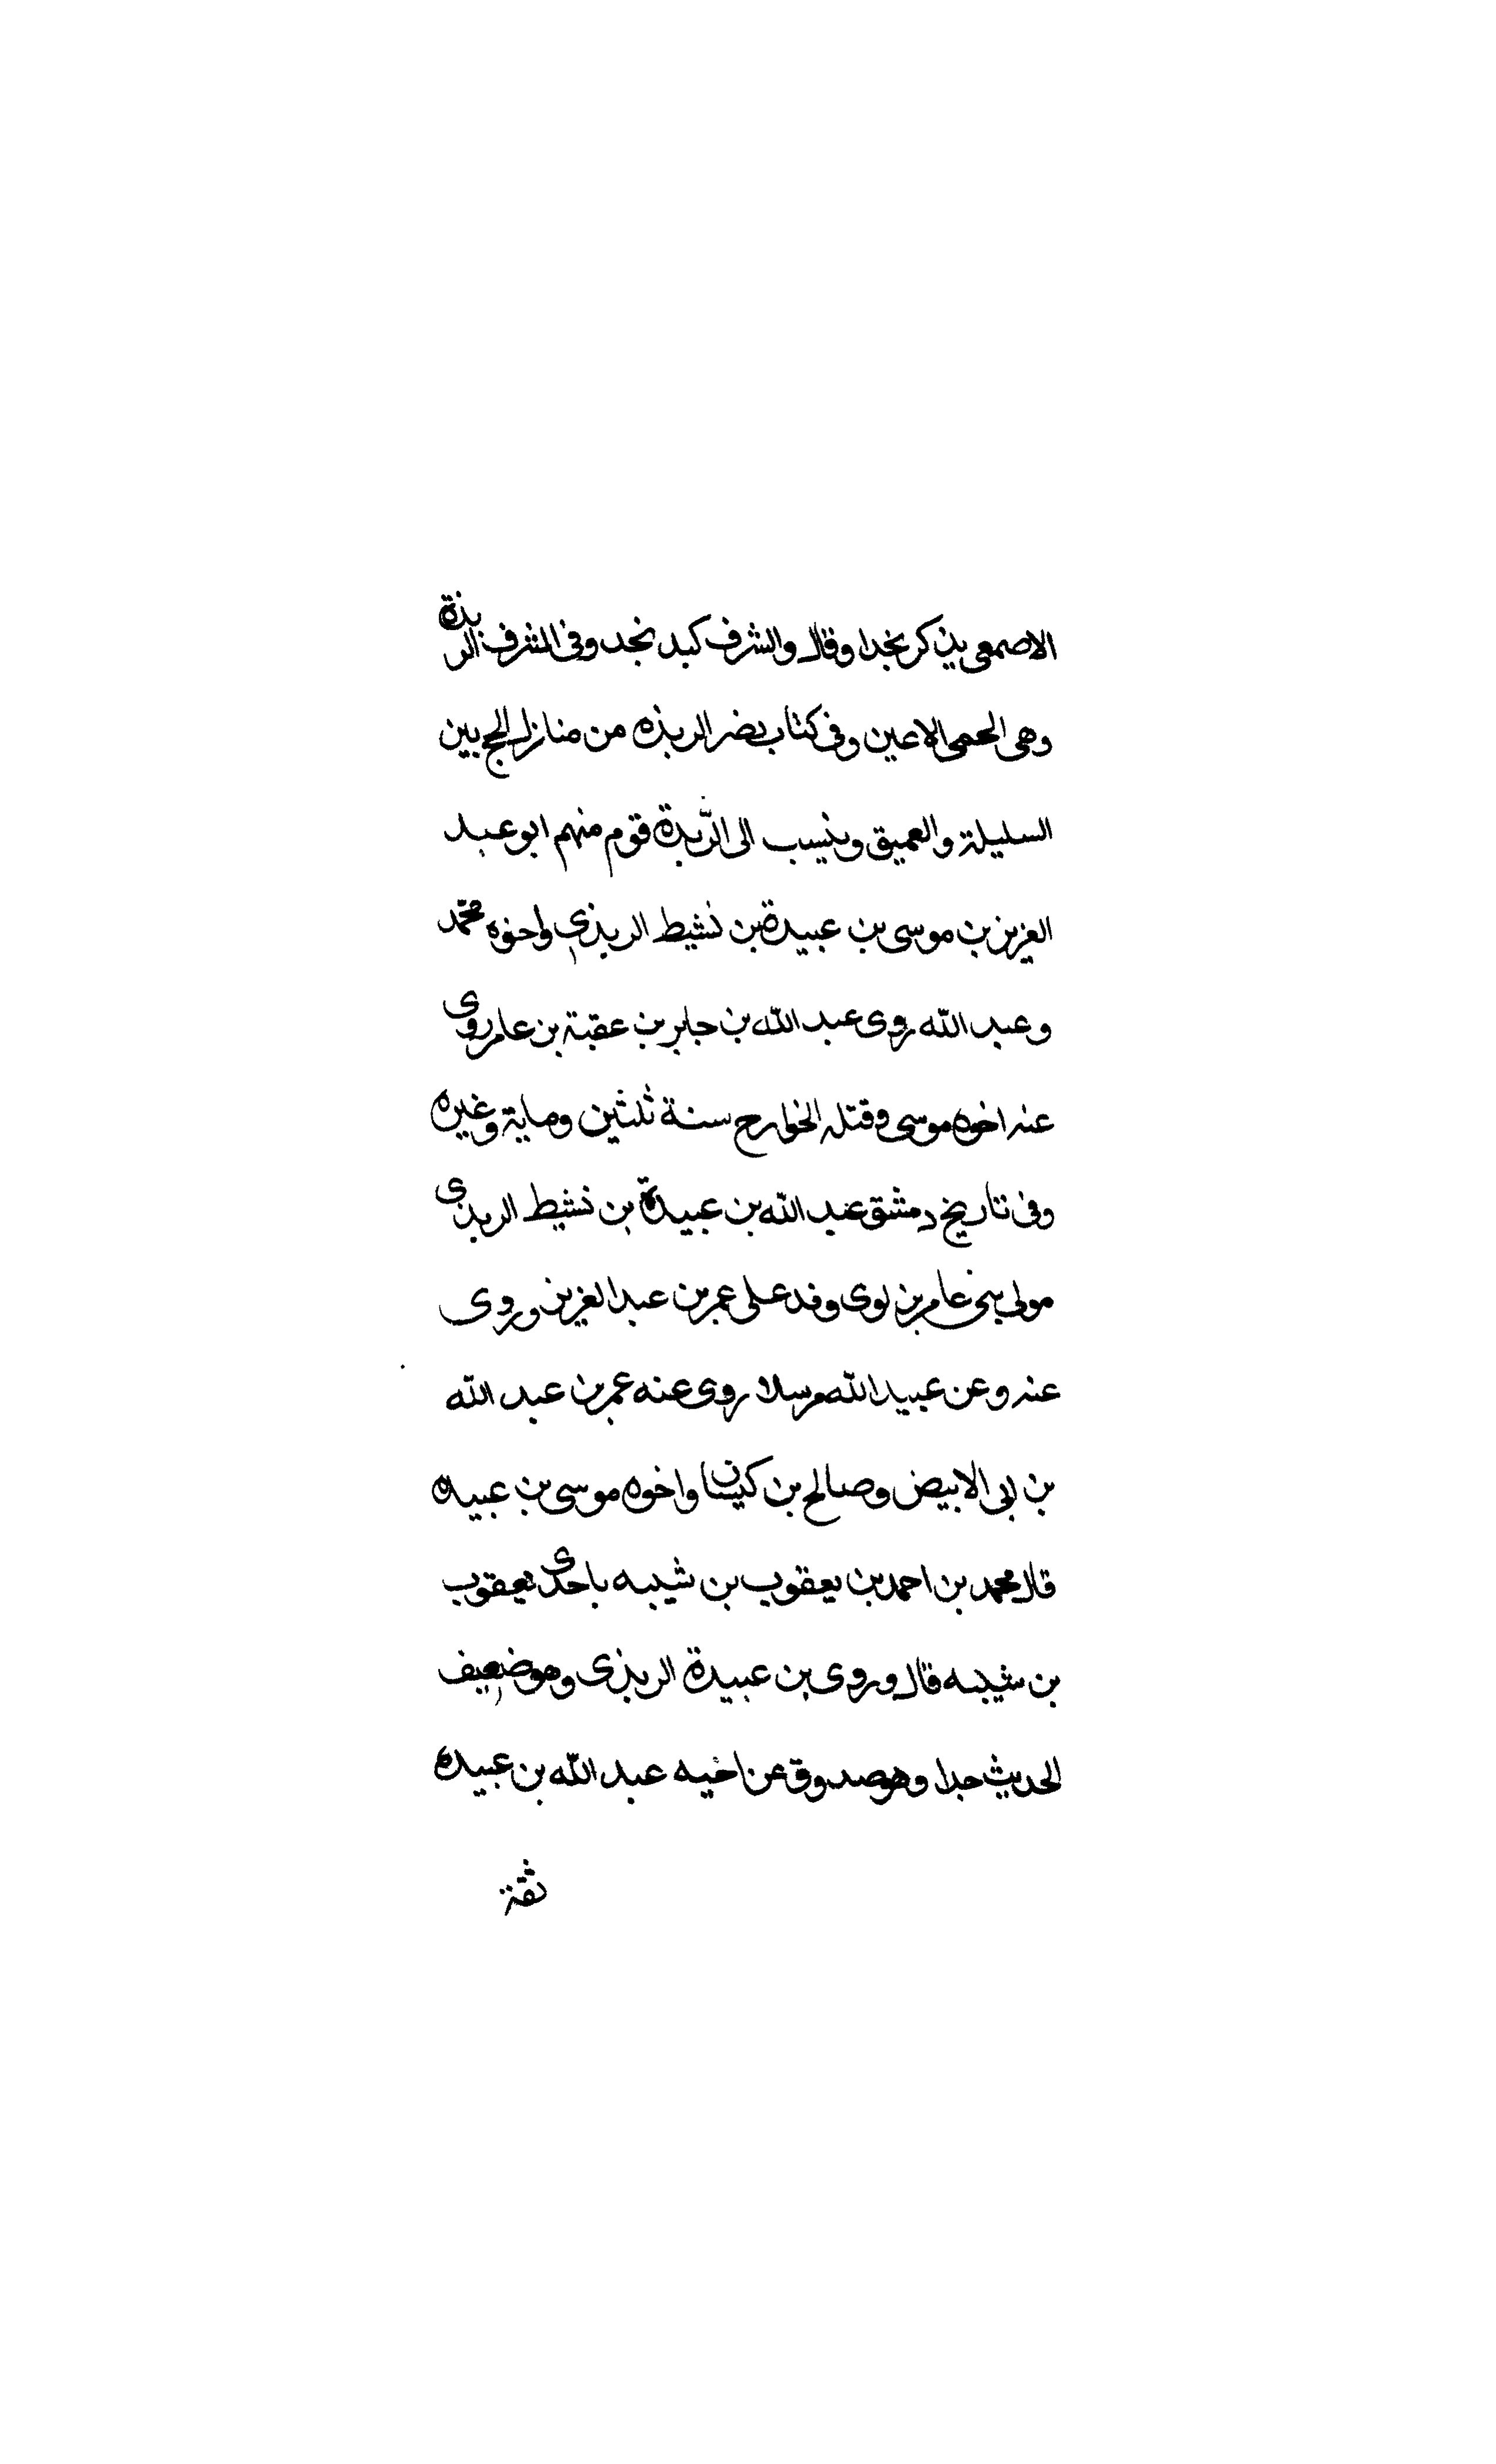 الاصمعى يذكر نجدا وقال والشرف كبد نجد وفى الشرف الربذة
وهى الحمى الاعين وفى كتاب نصر الربذه من منازل الحج بين
السليلة والعميق وينسب الى الرّبذة قوم منهم ابو عبد
العزيز بن موسى بن عبيدة بن نشيط الربذى واخوه محمّد
وعبد الله روى عبد الله بن جابر بن عقبة بن عامر روى
عنه اخوه موسى وقتله الخوارج سنة ثلثين وماية وغيره
وفى تاريخ دمشق عبد الله بن عبيدة بن نشيط الربذى
مولى بنى عامر بن لوى وفد على عمر بن عبد العزيز وروى
عنه وعن عبيد الله مرسلا روى عنه عمر بن عبد الله
بن ابى الابيض وصالح بن كيسان واخوه موسى بن عبيده
قال محمد بن احمد بن يعقوب بن شيبه با حدى يعقوب
بن شيبه قال وروى بن عبيدة الربذى وهو ضعيف
الحديث جدا وهو صدوق عن اخيه عبد الله بن عبيدة
ثقة